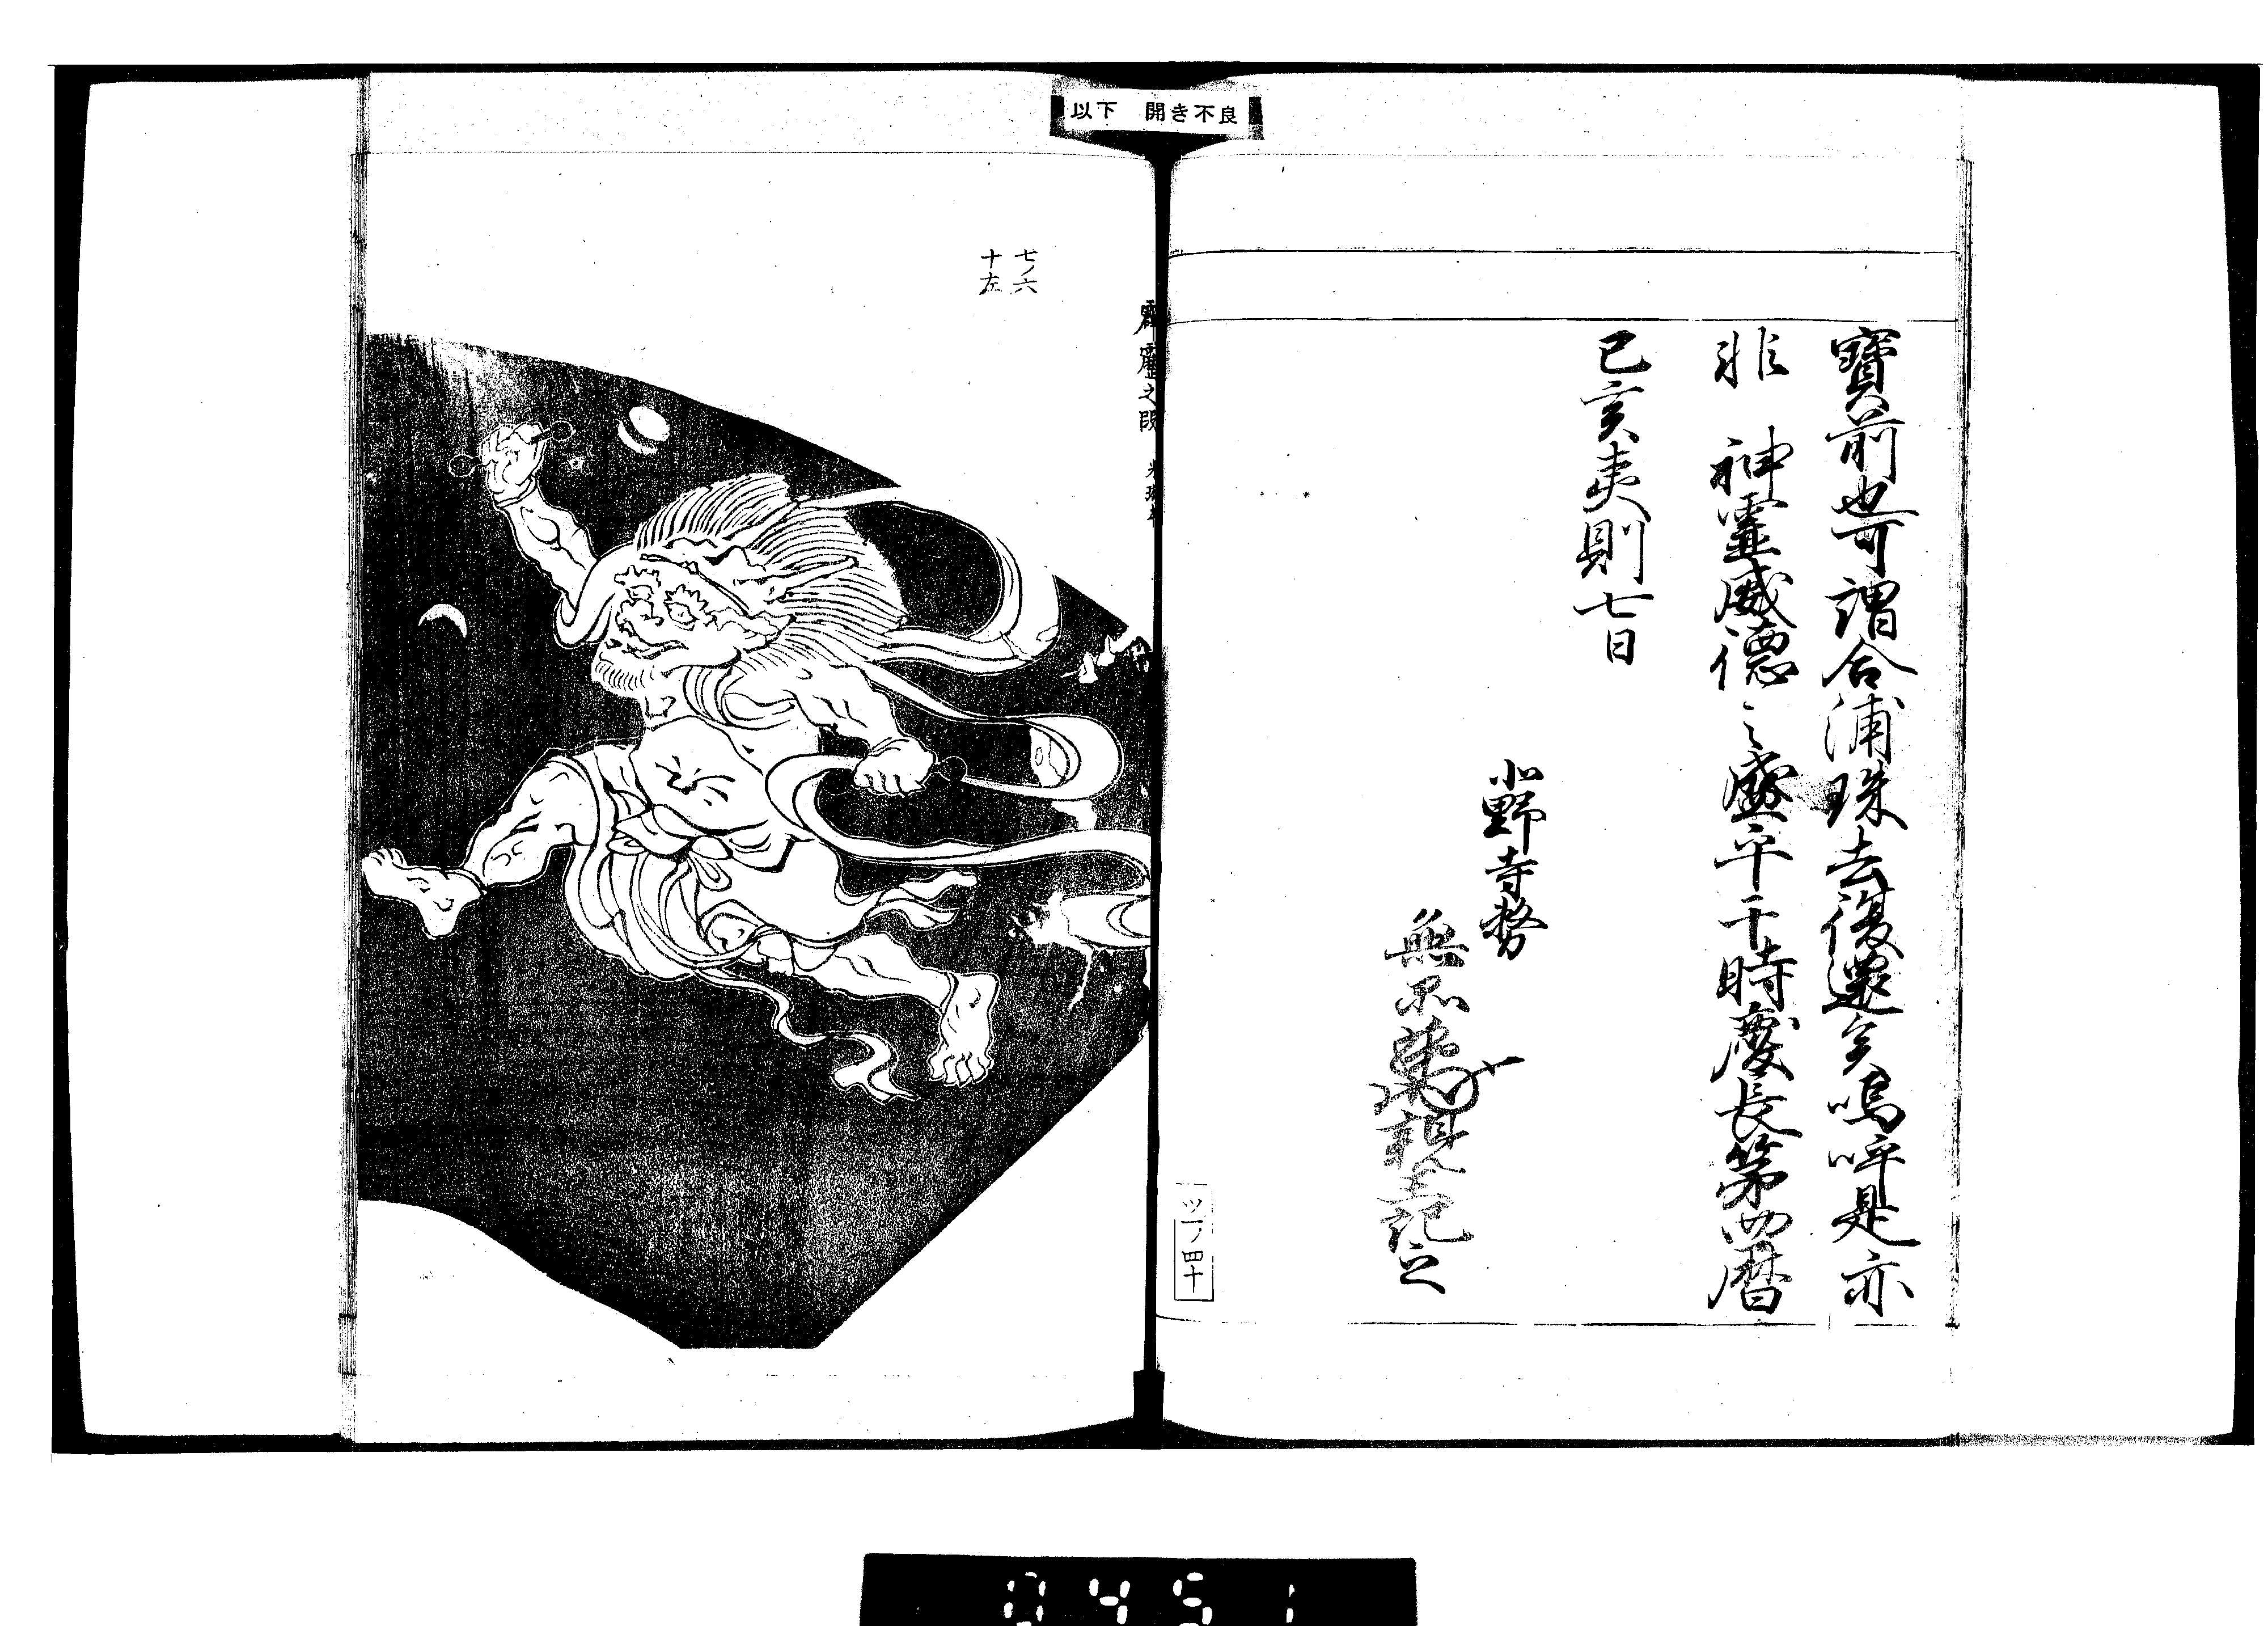 以下 開き不良
寶前也可謂合浦珠去復還矣嗚呼是亦
非 神靈威德之盛乎于時慶長第四暦
己亥夷則七日
北野寺務
無品 親王記之
ツ一ノ四十
霹靂之段
七ノ六
十左
0451